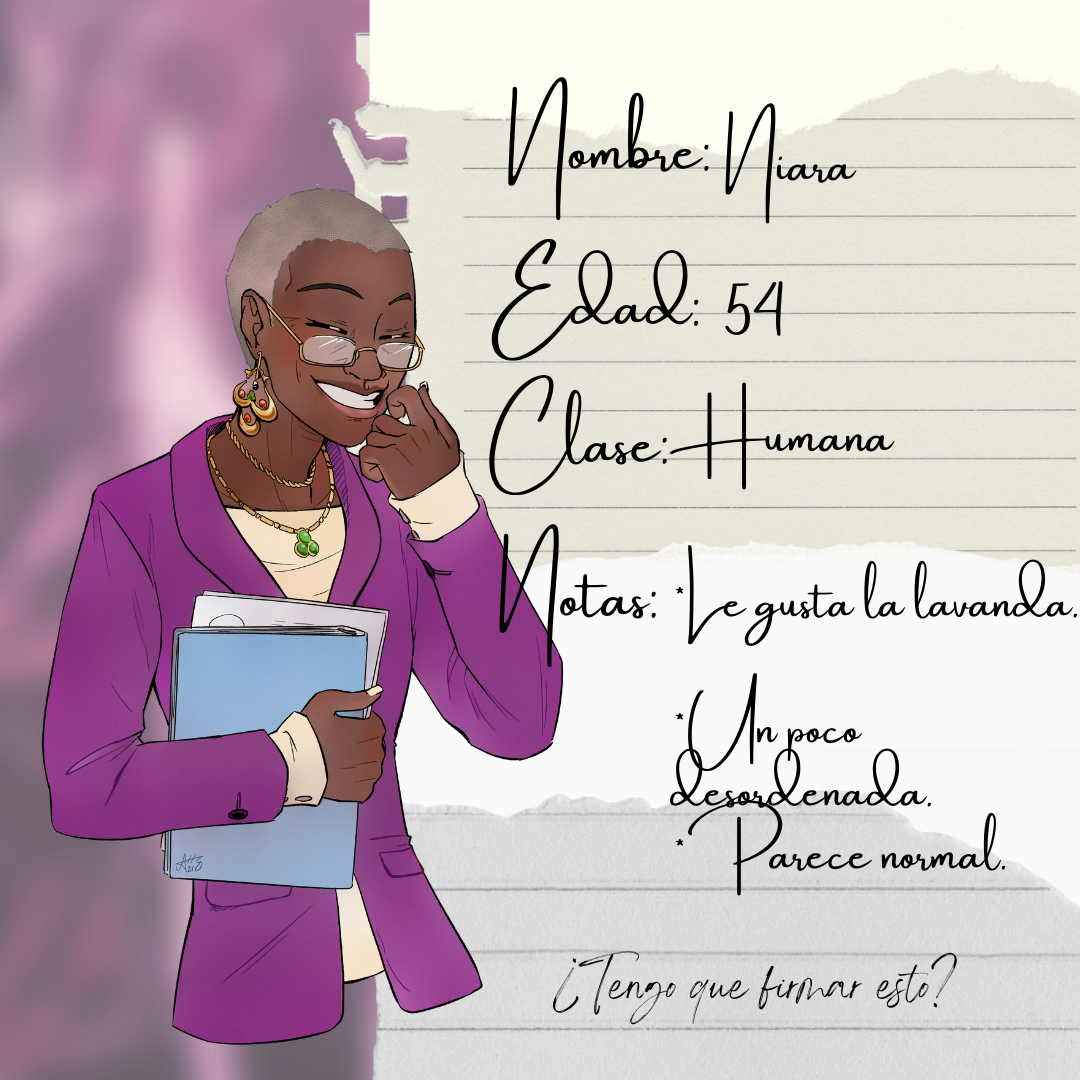 Nombre: Niara
Edad: 54
Clase: Humana
Notas: *Le gusta la lavanda.
*Un poco
desordenada.
* Parece normal.
¿Tengo que firmar esto?